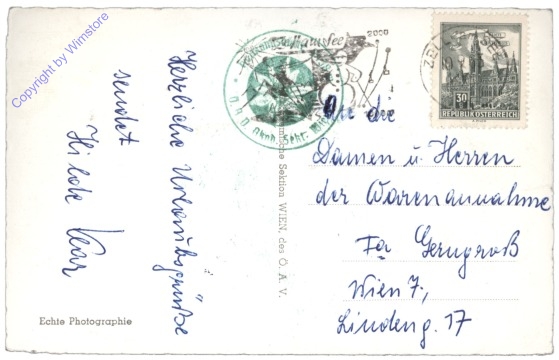 Copyright by Wimstore
Herzliche Urlaubsgrüße
sendet
Hilde
Echte Photographie
Sektion WIEN, des Ö. A. V.
2000
ZELL
30
REPUBLIK ÖSTERREICH
An die
Damen u. Herren
der Warenannahme
Fa Gerngroß
Wien 7,
Lindeng. 17